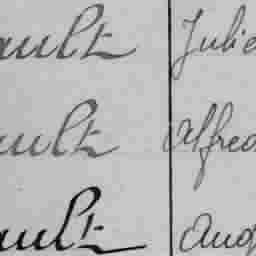 ault Julie
ault Alfred
ault Aug